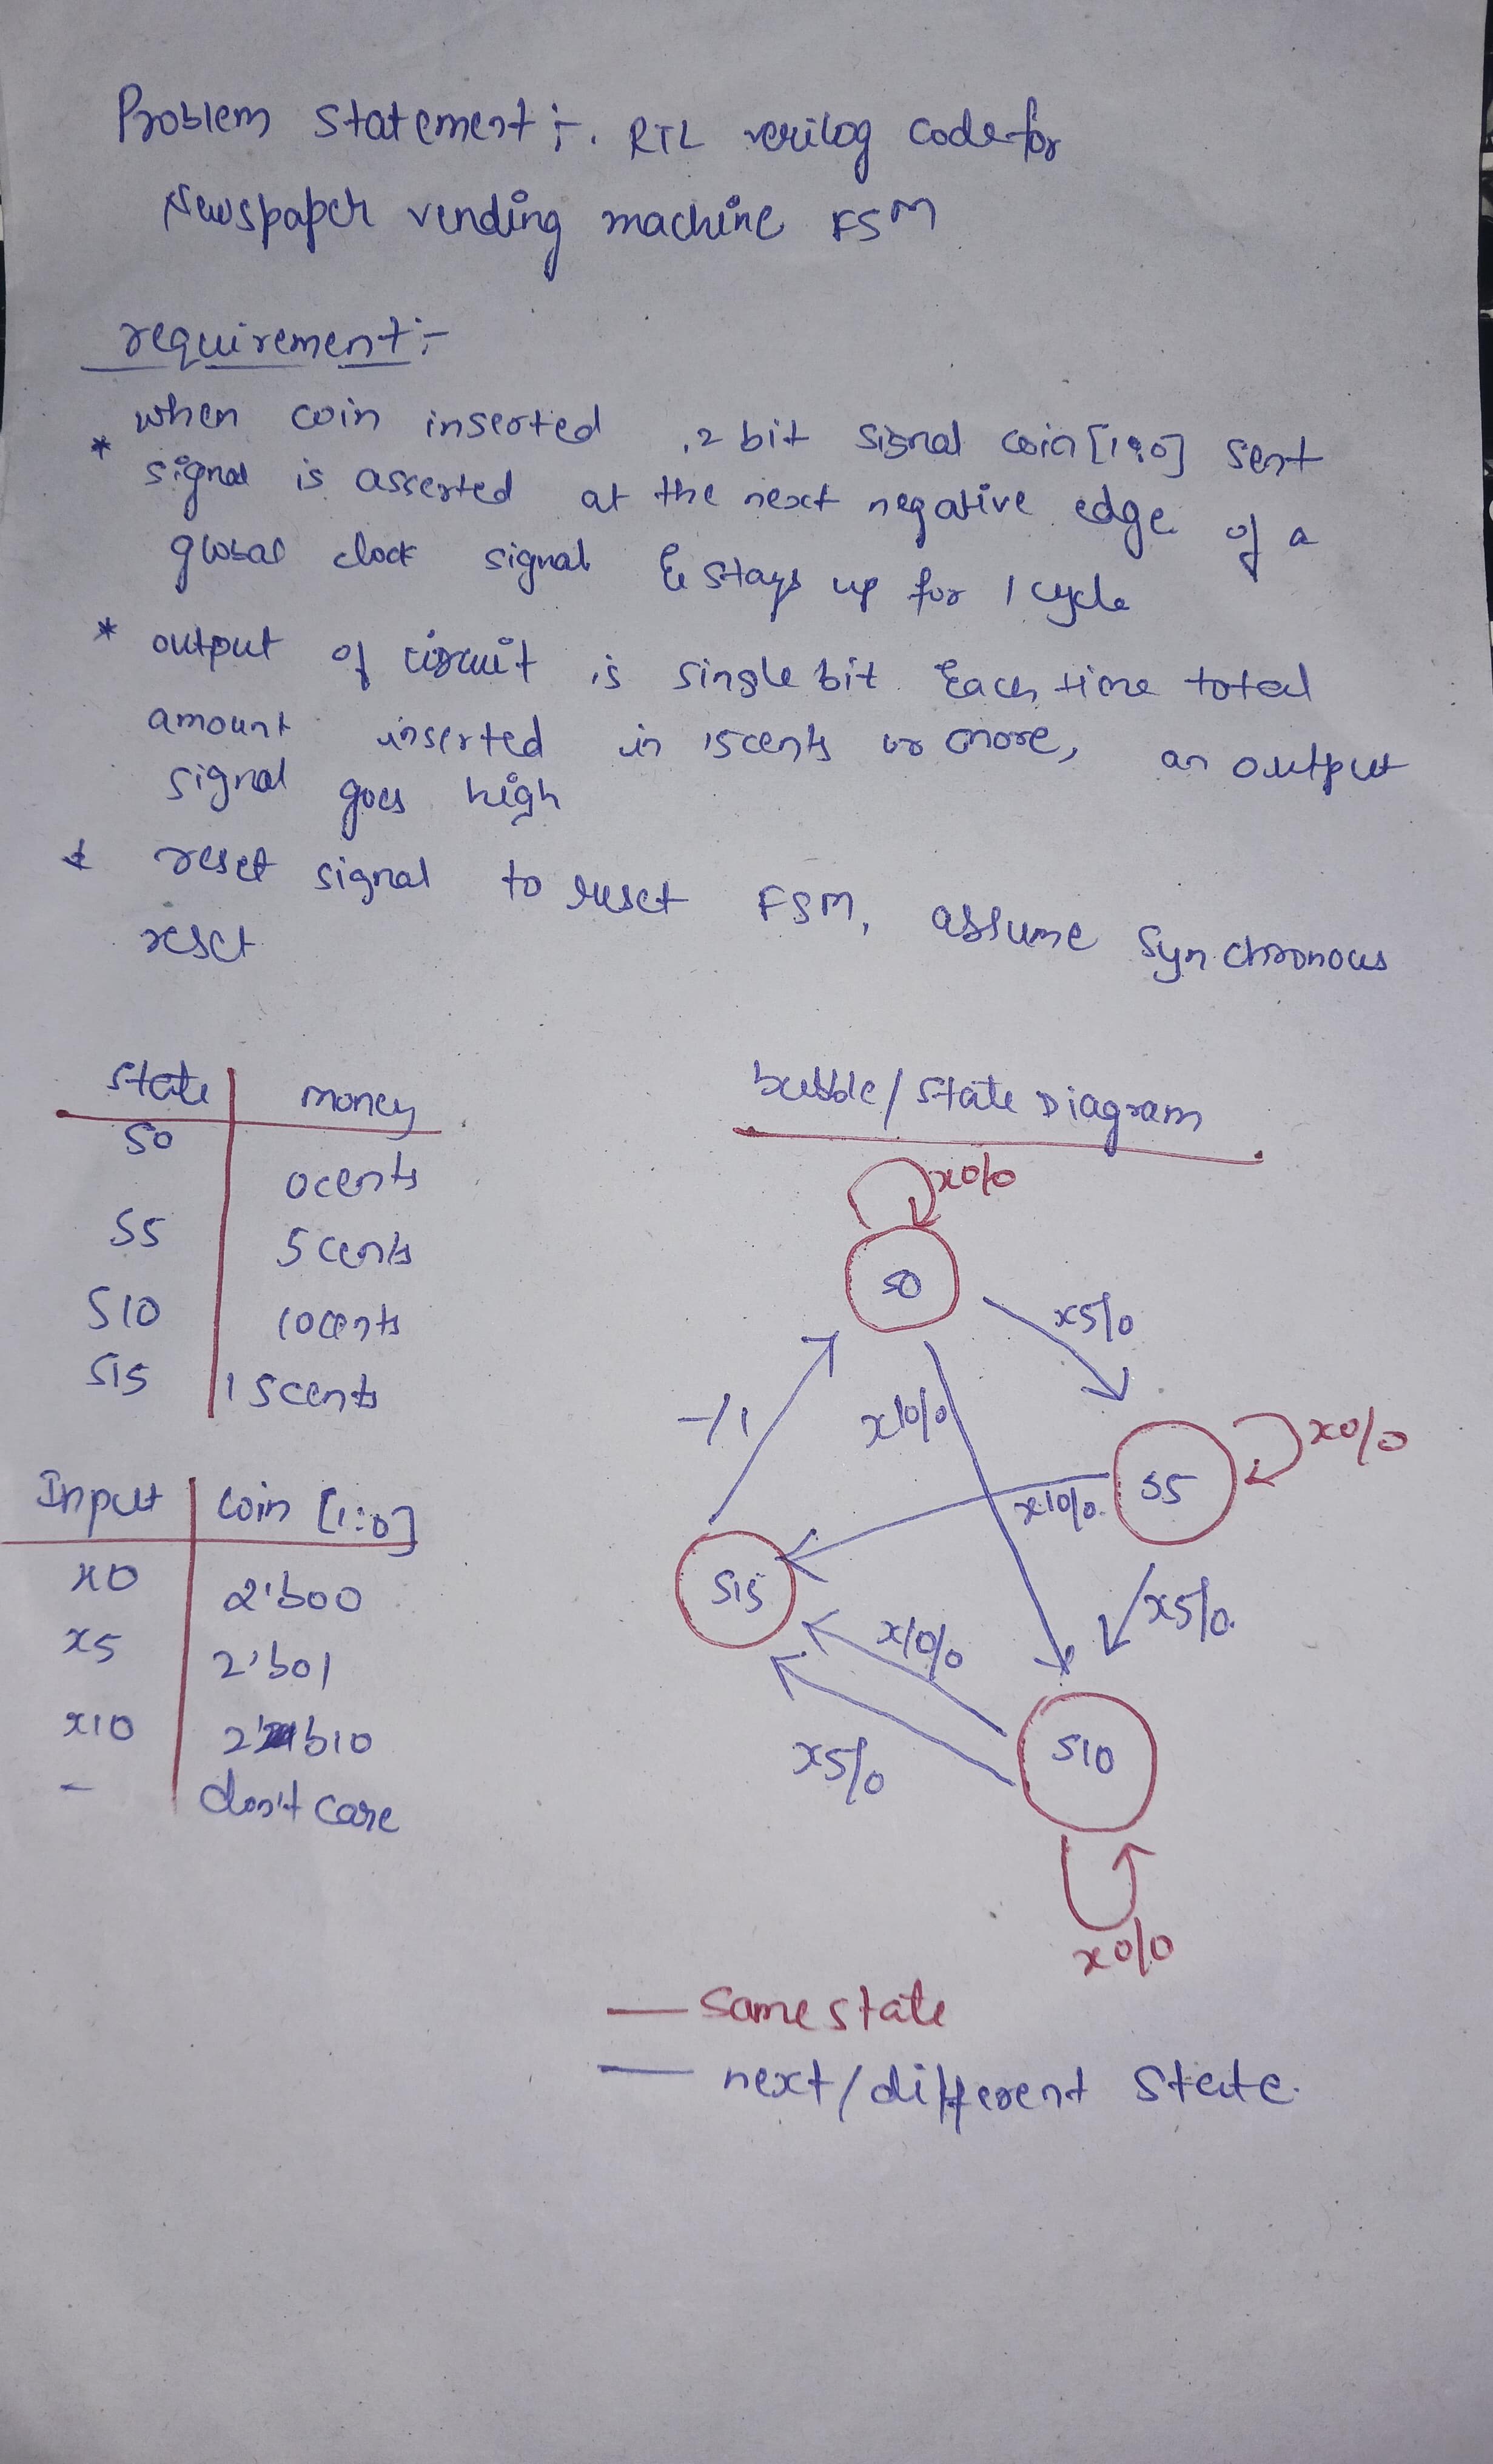 Problem statement :-. RTL verilog code for
Newspaper vending machine FSM
requirement :-
* when coin inserted , 2 bit signal coin [1:0] sent
signal is asserted at the next negative edge of a
global clock signal & stays up for 1 cycle
* output of circuit is single bit. Each time total
amount inserted in 15cents or more, an output
signal goes high
* reset signal to reset FSM, assume synchronous
reset
state money
S0 0cents
S5 5 cents
S10 10cents
S15 15cents
Input coin [1:0]
x0 2'b00
x5 2'b01
x10 2'b10
- don't care
bubble / State Diagram
x0/0
S0
x5/0
-/1
x10/0
x0/0
S5
x10/0
S15
x5/0
x10/0
x5/0
S10
x0/0
— same state
— next/different state.